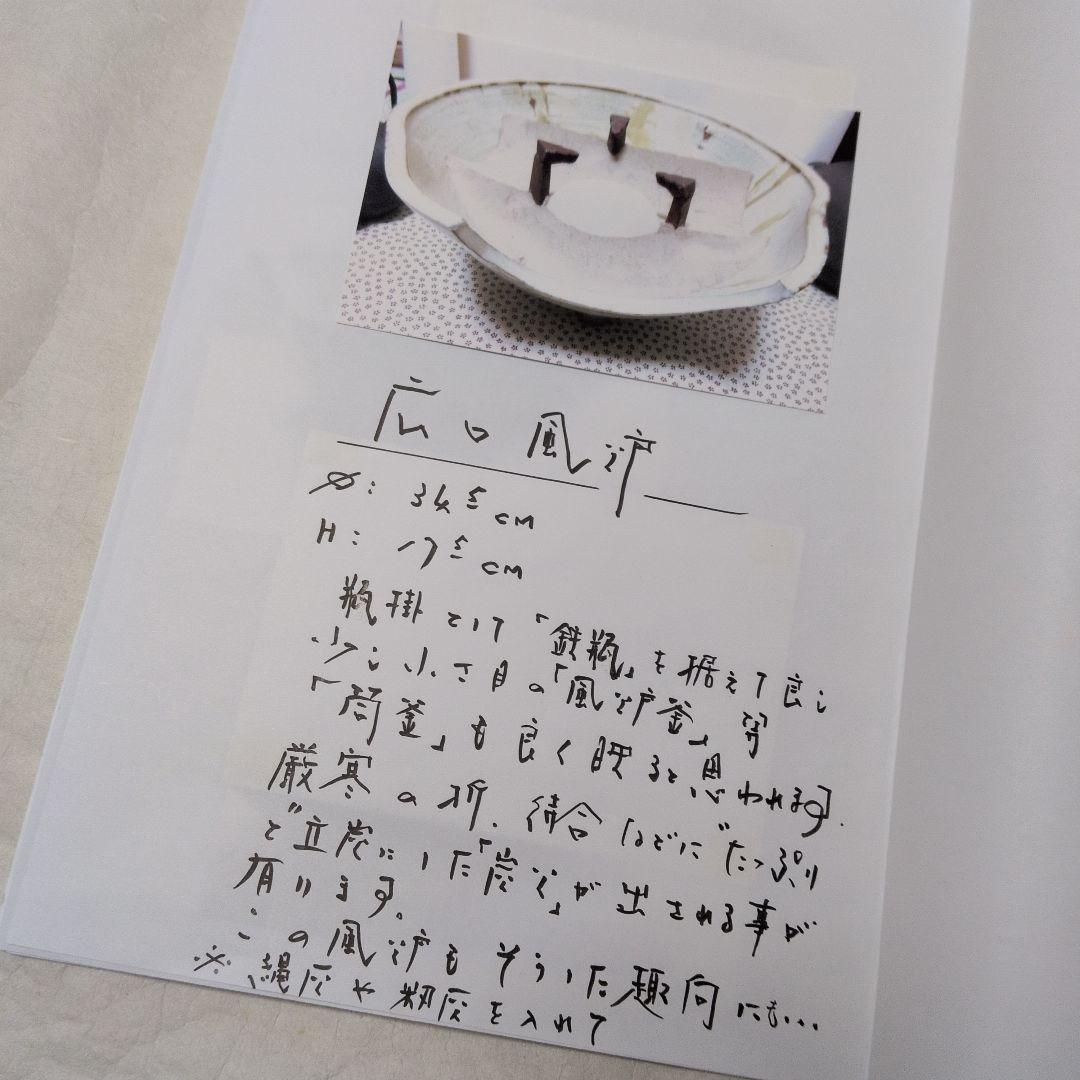 広口風炉
φ: 34.5cm
H: 17.5cm
瓶掛として「鉄瓶」を据えて良し
少し小さ目の「風炉釜」等
「筒釜」も良く映ると思われます.
厳寒の折、待合などに"たっぷり
と"立炭にした「炭火」が出される事が
有ります。
この風炉もそういった趣向にも...
※縄灰や籾灰を入れて